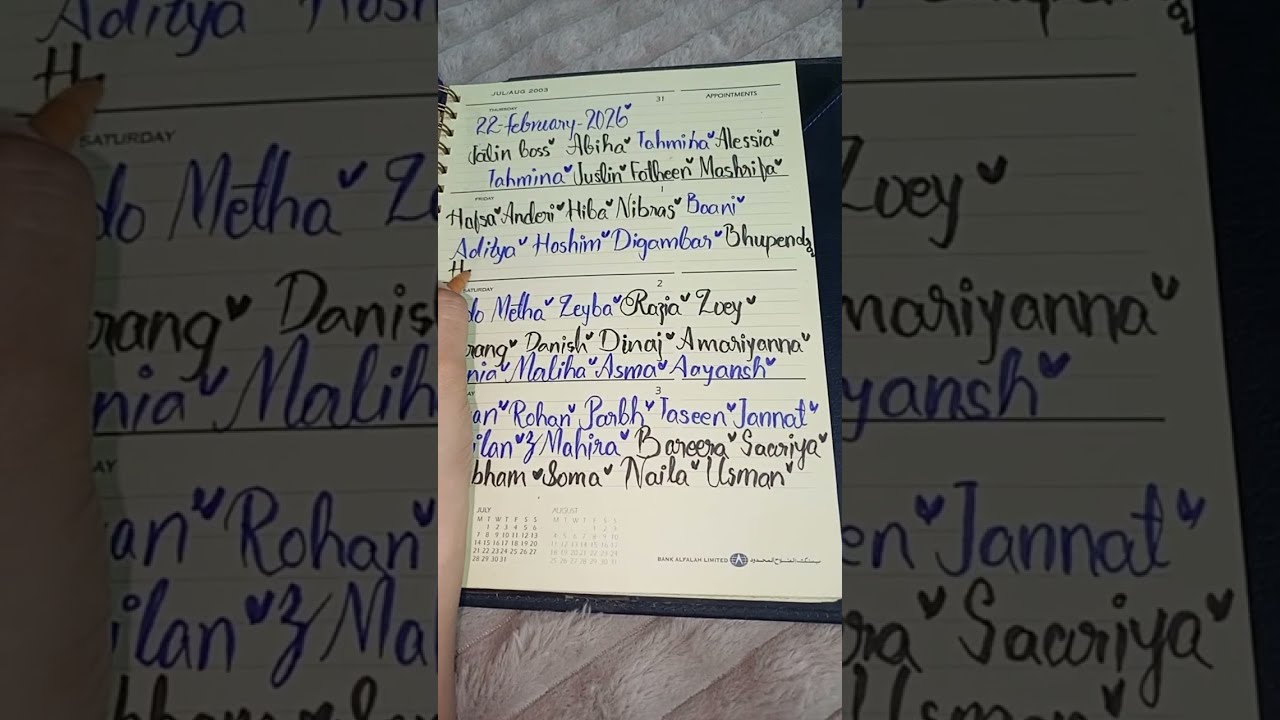 JUL/AUG 2003
THURSDAY 31 APPOINTMENTS
22-february-2026
Jalin boss Abiha Tahmina Alessia
Tahmina Justin Fatheen Mashrifa
FRIDAY 1
Hafsa Anderi Hiba Nibras Boani
Aditya Hoshim Digambar Bhupendra
H
SATURDAY 2
do Metha Zeyba Razia Zoey
rang Danish Dinaj Amariyanna
nia Maliha Asma Aayansh
AY 3
an Rohan Parbh Taseen Jannat
ilan Z Mahira Bareera Saariya
bham Soma Naila Usman
JULY AUGUST
M T W T F S S M T W T F S S
1 2 3 4 5 6 1 2 3
7 8 9 10 11 12 13 4 5 6 7 8 9 10
14 15 16 17 18 19 20 11 12 13 14 15 16 17
21 22 23 24 25 26 27 18 19 20 21 22 23 24
28 29 30 31 25 26 27 28 29 30 31
BANK ALFALAH LIMITED بنك الفلاح المحدود